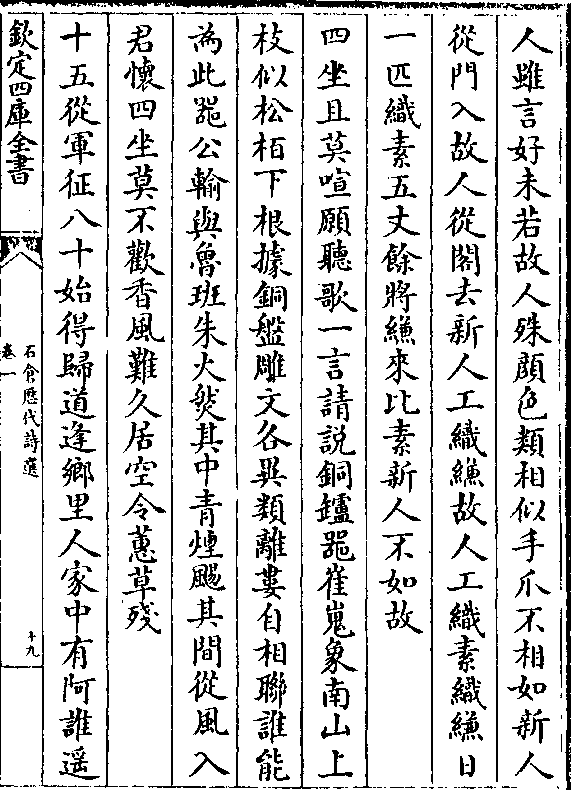 人雖言好未若故人殊顔色類相似手爪不相如新人
從門入故人從閣去新人工織縑故人工織素織縑日
一匹織素五丈餘將縑來比素新人不如故
四坐且莫喧願聽歌一言請説銅鑪器崔嵬象南山上
枝似松栢下根據銅盤雕文各異類離婁自相聯誰能
為此器公輸與魯班朱火然其中青煙颺其間從風入
君懷四坐莫不歡香風難久居空令蕙草殘
十五從軍征八十始得歸道逢鄉里人家中有阿誰遥
欽定四庫全書
石倉歴代詩選
卷一
十九